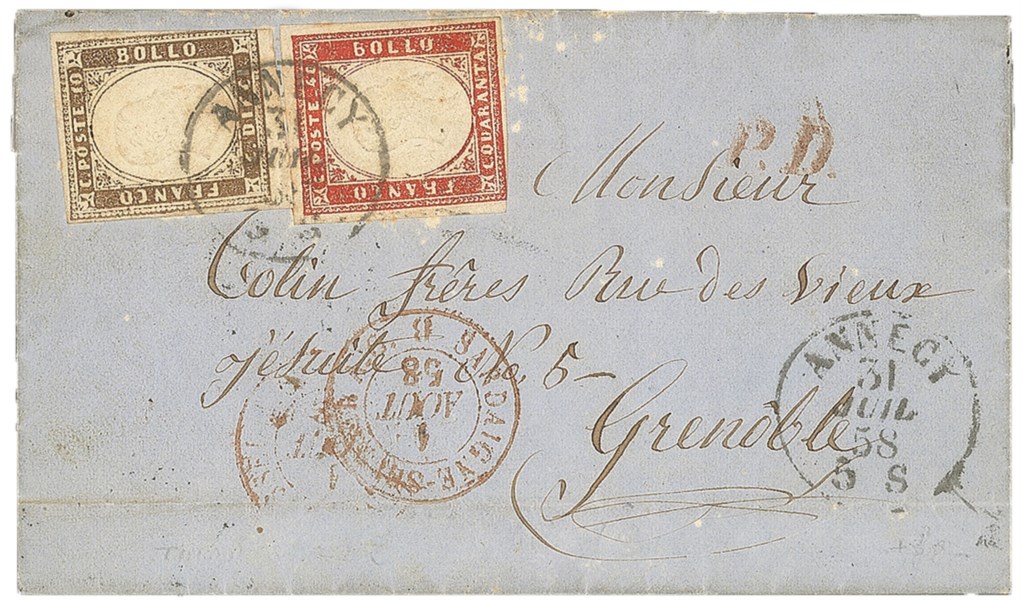 BOLLO
C. POSTE 10
C. DIECI
FRANCO
BOLLO
C. POSTE 40
C. QUARANTA
FRANCO
ANNECY
31
P.D.
Monsieur
Colin frères Rue des Vieux
jésuite No. 5
Grenoble
ANNECY
31
JUIL
58
5 S
1
AOUT
58
B